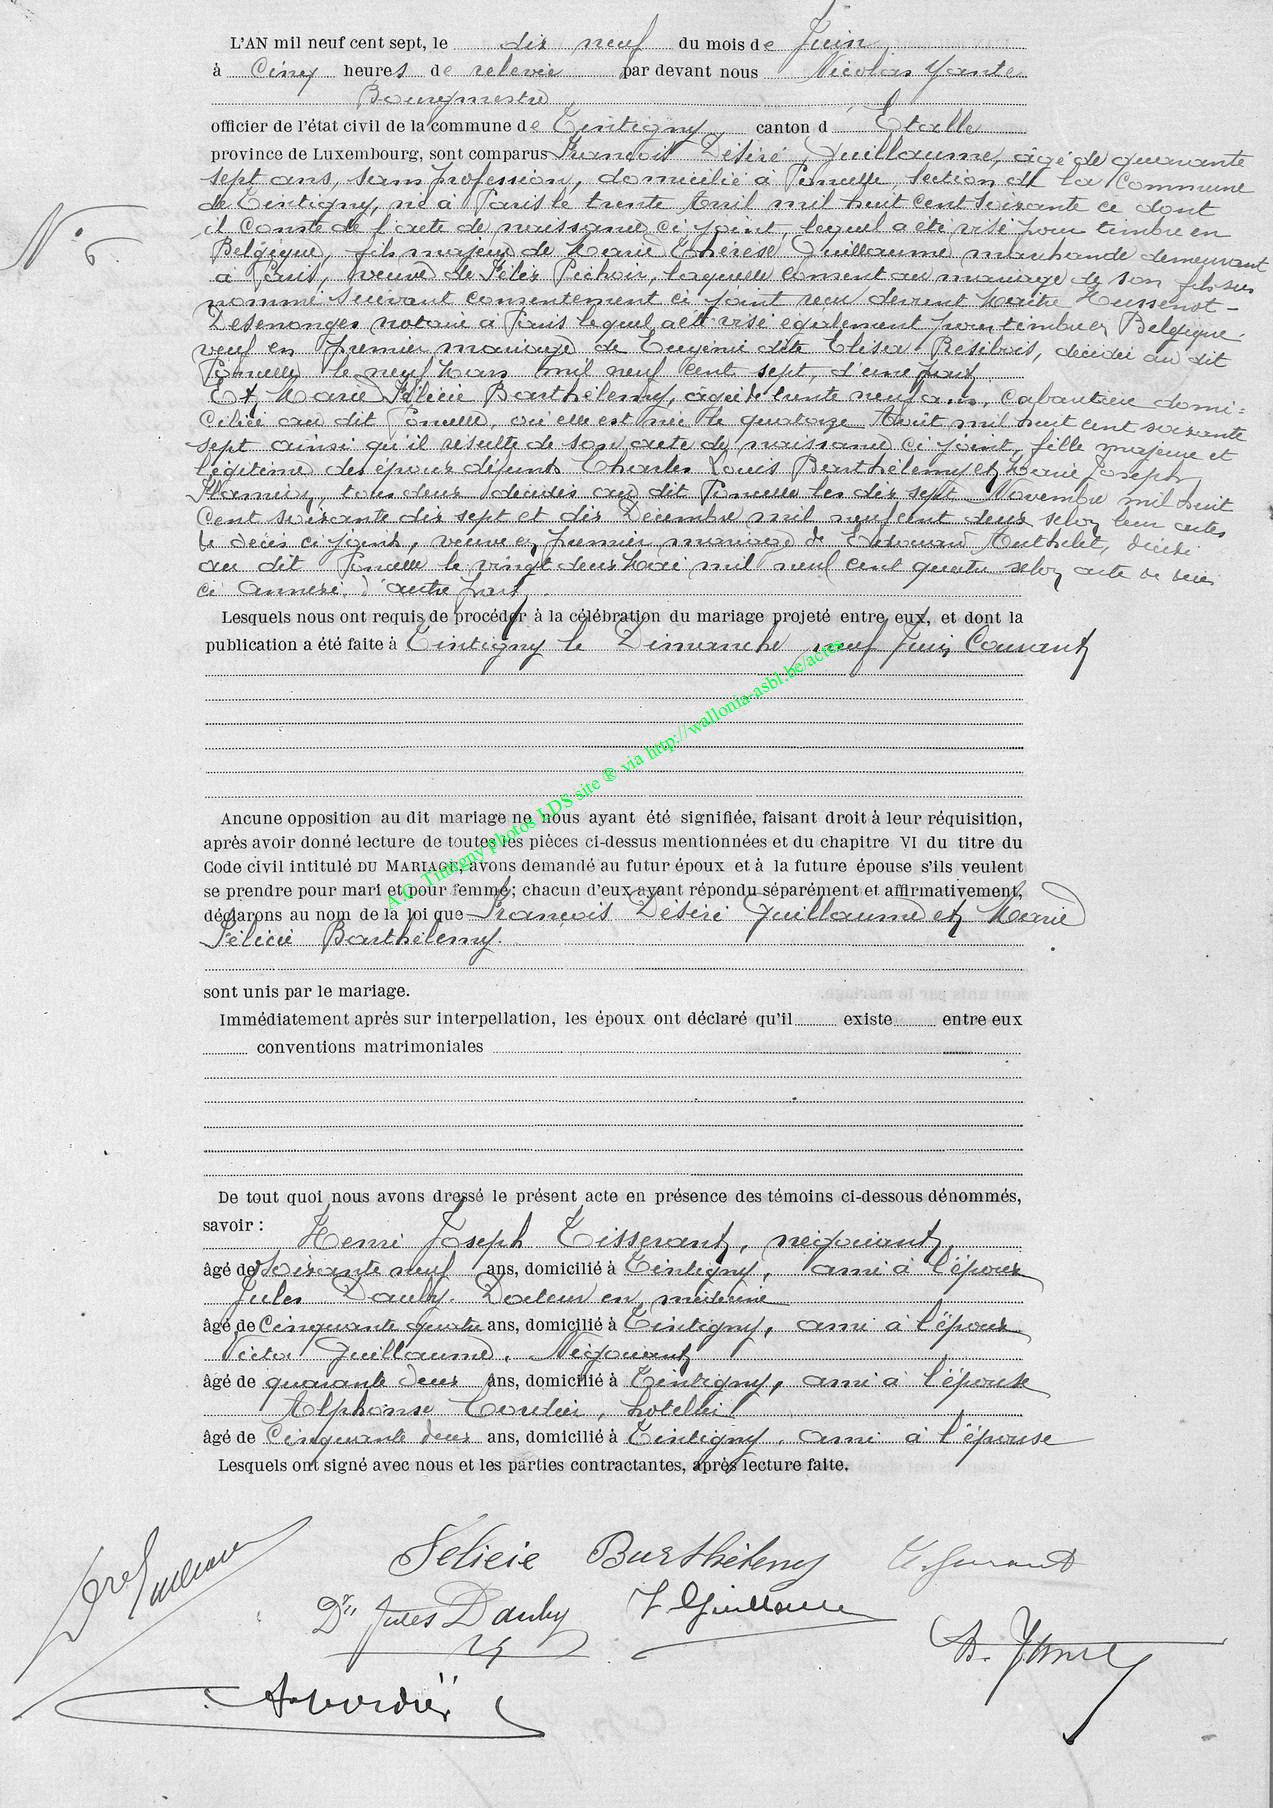 L'AN mil neuf cent sept, le dix neuf du mois de Juin
à Cinq heures de relevée par devant nous Nicolas Yante
Bourgmestre
officier de l'état civil de la commune de Tintigny canton d' Etalle
province de Luxembourg, sont comparus François Désiré Guillaume, âgé de quarante
sept ans, sans profession, domicilié à Poncelle, section de la Commune
de Tintigny, né à Paris le trente Avril mil huit cent soixante ce dont
N° 6.
il Conste de l'acte de naissance ci joint, lequel a été visé pour timbre en
Belgique, fils majeur de Marie Thérèse Guillaume marchande demeurant
à Paris, veuve de Félix Pichoir, laquelle consent au mariage de son fils sus
nommé suivant consentement ci joint reçu devant Maître Hussenot-
Desenonges notaire à Paris lequel a été visé également pour timbre en Belgique.
veuf en premier mariage de Eugénie dite Elisa Resibois, décédée au dit
Poncelle le neuf Mars mil neuf cent sept, d'une part
Et Marie Félicie Barthélemy, âgée de trente neuf ans, cabaretière domi=
ciliée au dit Poncelle, où elle est née le quatorze Août mil huit cent soixante
sept ainsi qu'il résulte de son acte de naissance ci joint, fille majeure et
légitime des époux défunts Charles Louis Barthélemy et Marie Joseph
tous deux décédés au dit Poncelle les dix sept Novembre mil huit
cent soixante dix sept et dix Décembre mil neuf cent deux selon leur actes
de décès ci joints, veuve en premier mariage de Edouard Authelet, décédé
au dit Poncelle le vingt deux Mai mil neuf cent quatre selon acte de décès
ci annexé. d'autre part.
Lesquels nous ont requis de procéder à la célébration du mariage projeté entre eux, et dont la
publication a été faite à Tintigny le Dimanche neuf Juin Courant
A.C. Tintigny photos LDS site ® via http://wallonia-asbl.be/actes
Ancune opposition au dit mariage ne nous ayant été signifiée, faisant droit à leur réquisition,
après avoir donné lecture de toutes les pièces ci-dessus mentionnées et du chapitre VI du titre du
Code civil intitulé DU MARIAGE, avons demandé au futur époux et à la future épouse s'ils veulent
se prendre pour mari et pour femme; chacun d'eux ayant répondu séparément et affirmativement,
déclarons au nom de la loi que François Désiré Guillaume et Marie
Félicie Barthélemy.
sont unis par le mariage.
Immédiatement après sur interpellation, les époux ont déclaré qu'il existe entre eux
conventions matrimoniales
De tout quoi nous avons dressé le présent acte en présence des témoins ci-dessous dénommés,
savoir :
Henri Joseph Tisserant, négociant,
âgé de Soixante neuf ans, domicilié à Tintigny, ami à l'époux
Jules Dauby. Docteur en médecine
âgé de Cinquante quatre ans, domicilié à Tintigny, ami à l'époux
Victor Guillaume, Négociant
âgé de quarante deux ans, domicilié à Tintigny, ami à l'épouse
Alphonse Cordier, hotelier
âgé de Cinquante deux ans, domicilié à Tintigny, ami à l'épouse
Lesquels ont signé avec nous et les parties contractantes, après lecture faite.
Félicie Barthélemy Tisserant
Dr Jules Dauby V Guillaume
N. Yante
A. Cordier